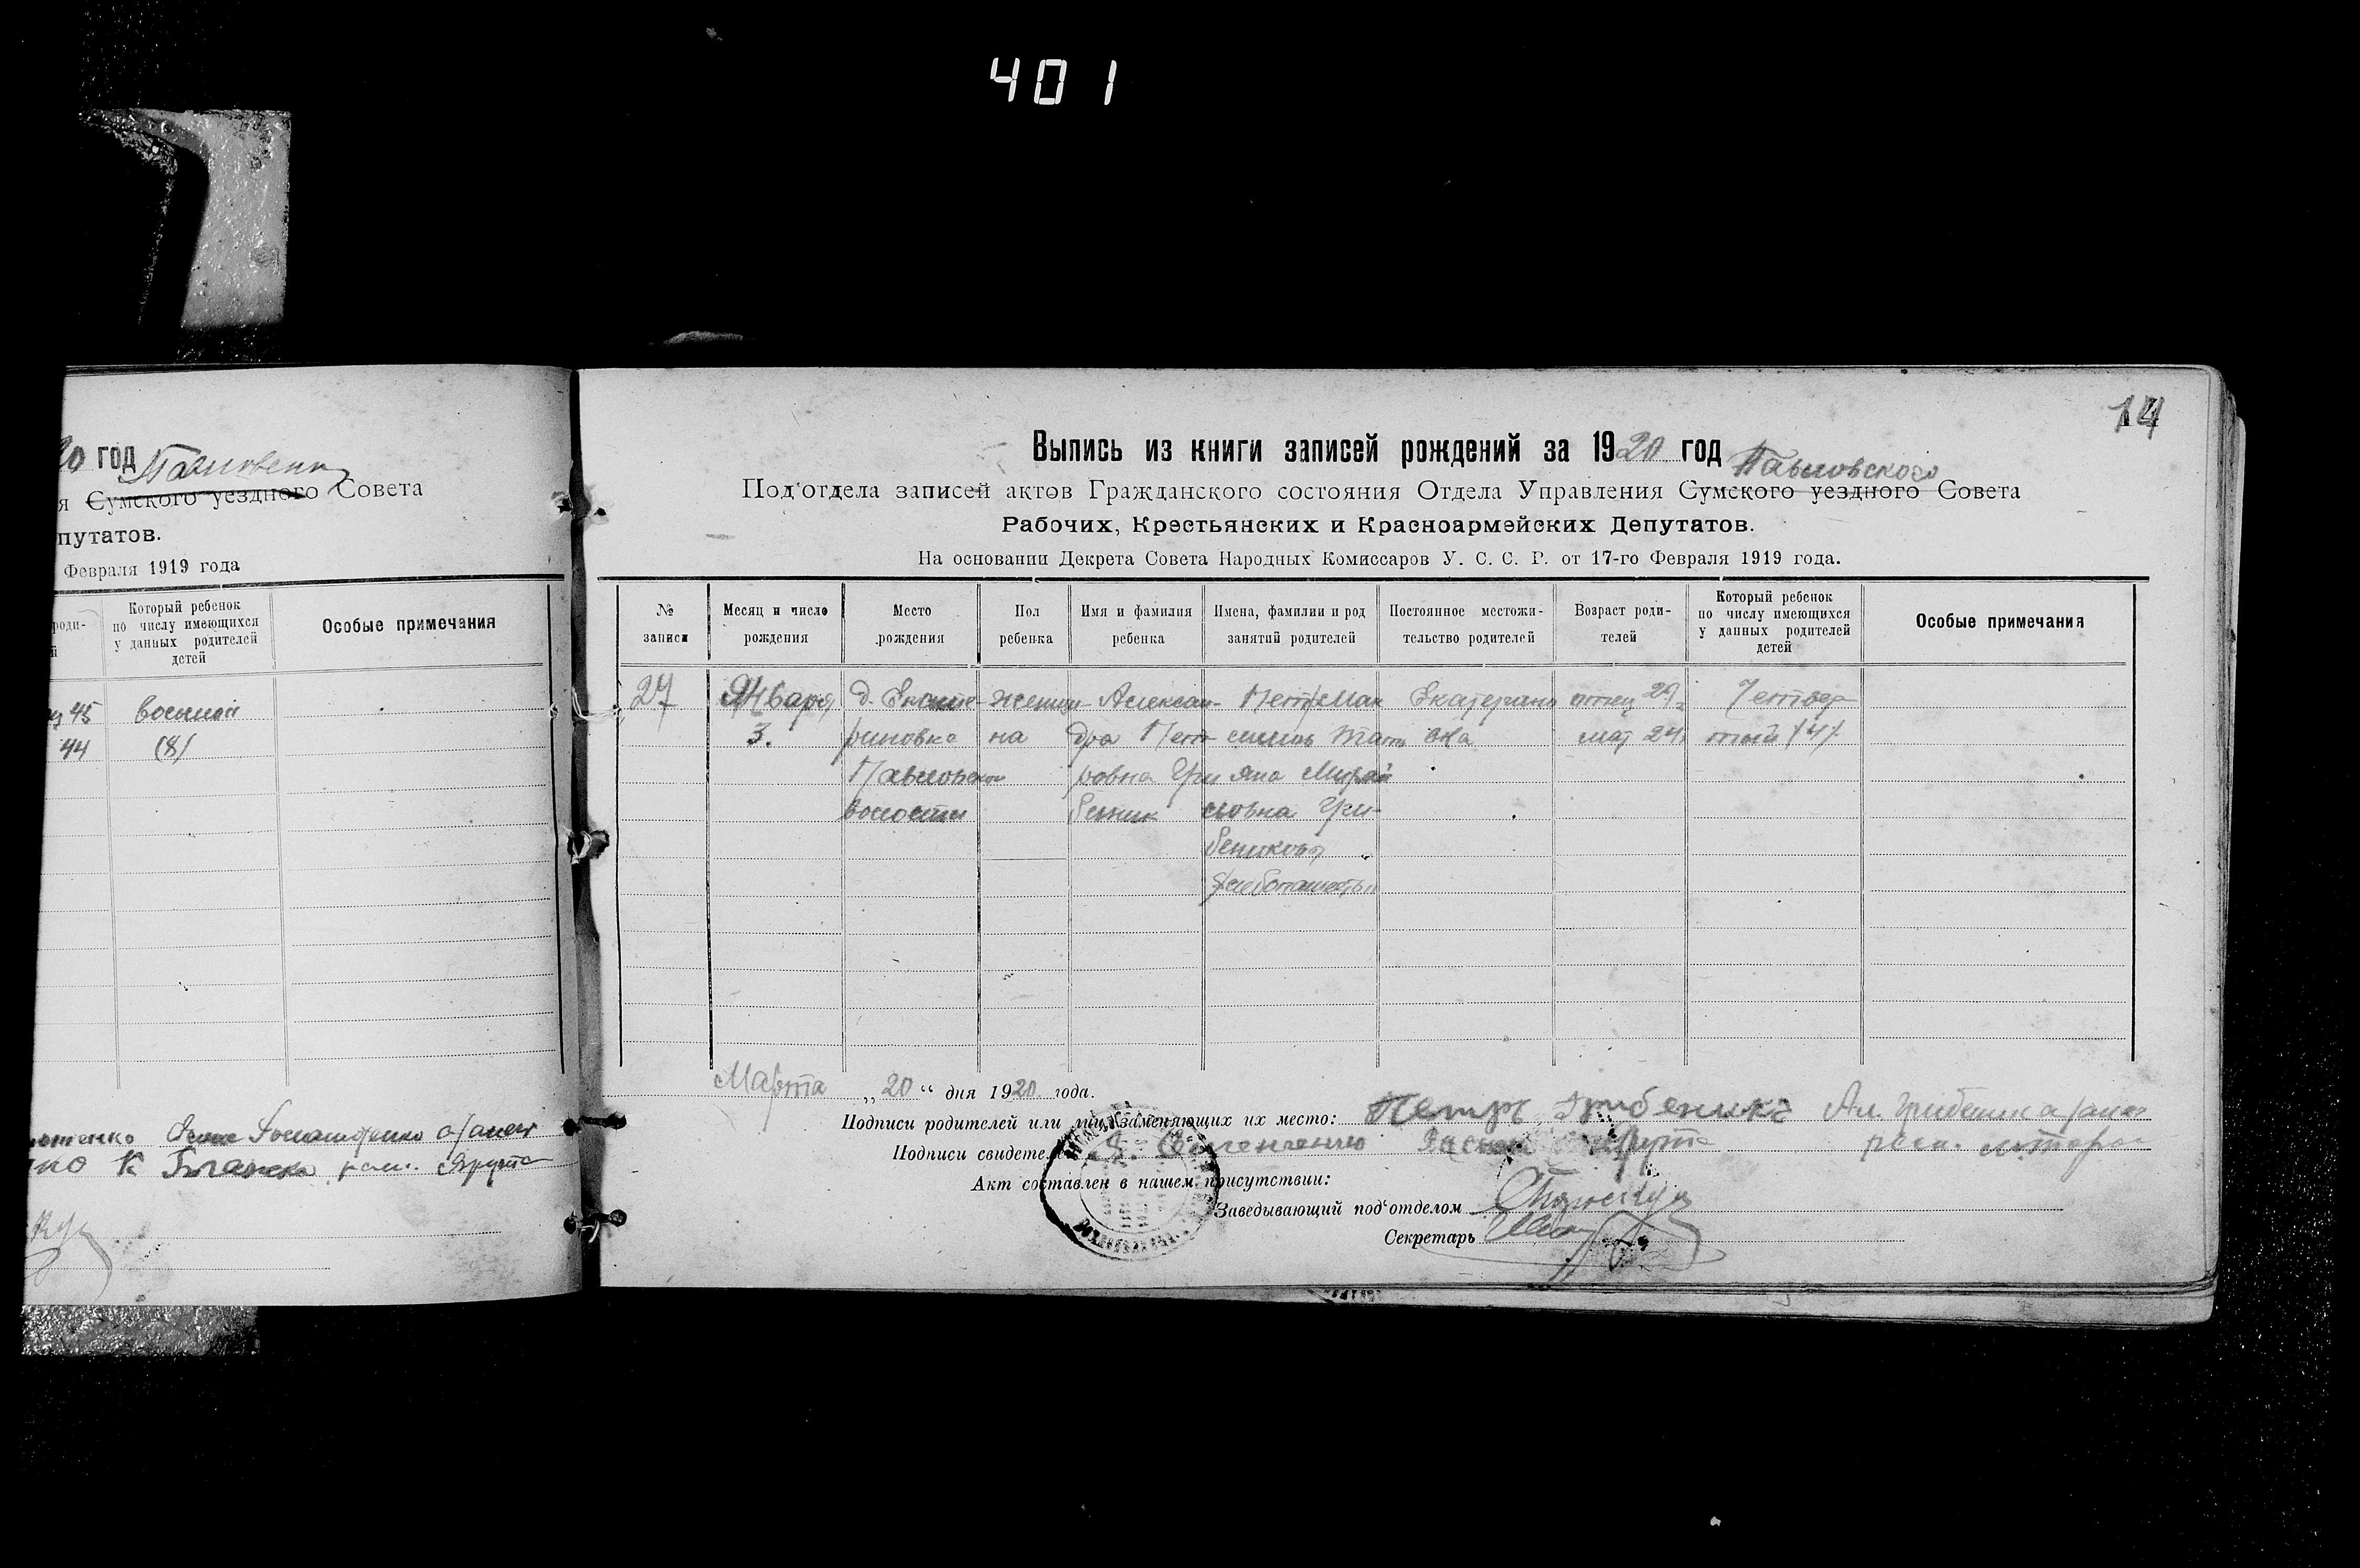 401
20 год Павловског
я Сумского уездного Совета
путатов.
Февраля 1919 года
роди-
й
Который ребенок
по числу имеющихся
у данных родителей
детей
Особые примечания
45 восьмой
44 (8)
14
Выпись из книги записей рождений за 1920 год Павловского
Под'отдела записей актов Гражданского состояния Отдела Управления Сумского уездного Совета
Рабочих, Крестьянских и Красноармейских Депутатов.
На основании Декрета Совета Народных Комиссаров У. С. С. Р. от 17-го Февраля 1919 года.
№
записи
Месяц и число
рождения
Место
рождения
Пол
ребенка
Имя и фамилия
ребенка
Имена, фамилии и род
занятий родителей
Постоянное местожи-
тельство родителей
Возраст роди-
телей
Который ребенок
по числу имеющихся
у данных родителей
детей
Особые примечания
27
Января
3.
д. Екате-
риновка
Павловской
волости
женщи-
на
Алексан-
дра Пет-
ровна Гри
беник
Петр Мак
симов Тать
яна
словна Гри-
беникова
Екатерино
вка
отец 29
мат 24
Четвер
тый (4)
Марта „20“ дня 1920 года.
Подписи родителей или лиц заменяющих их место: Петр Грибеника Ал. Грибеник
Подписи свидете
Акт составлен в нашем присутствии:
Заведывающий под'отделом
Секретарь